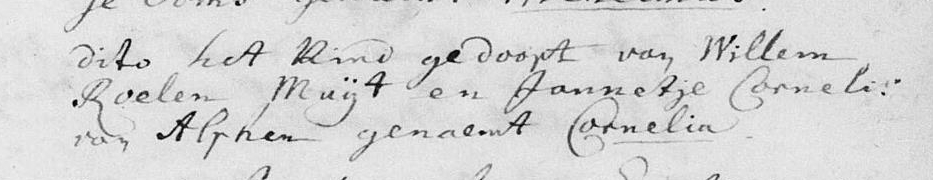 dito het Kind gedoopt van Willem
Roelen Muijt en Jannetje Corneli:
van Alphen genaemt Cornelia